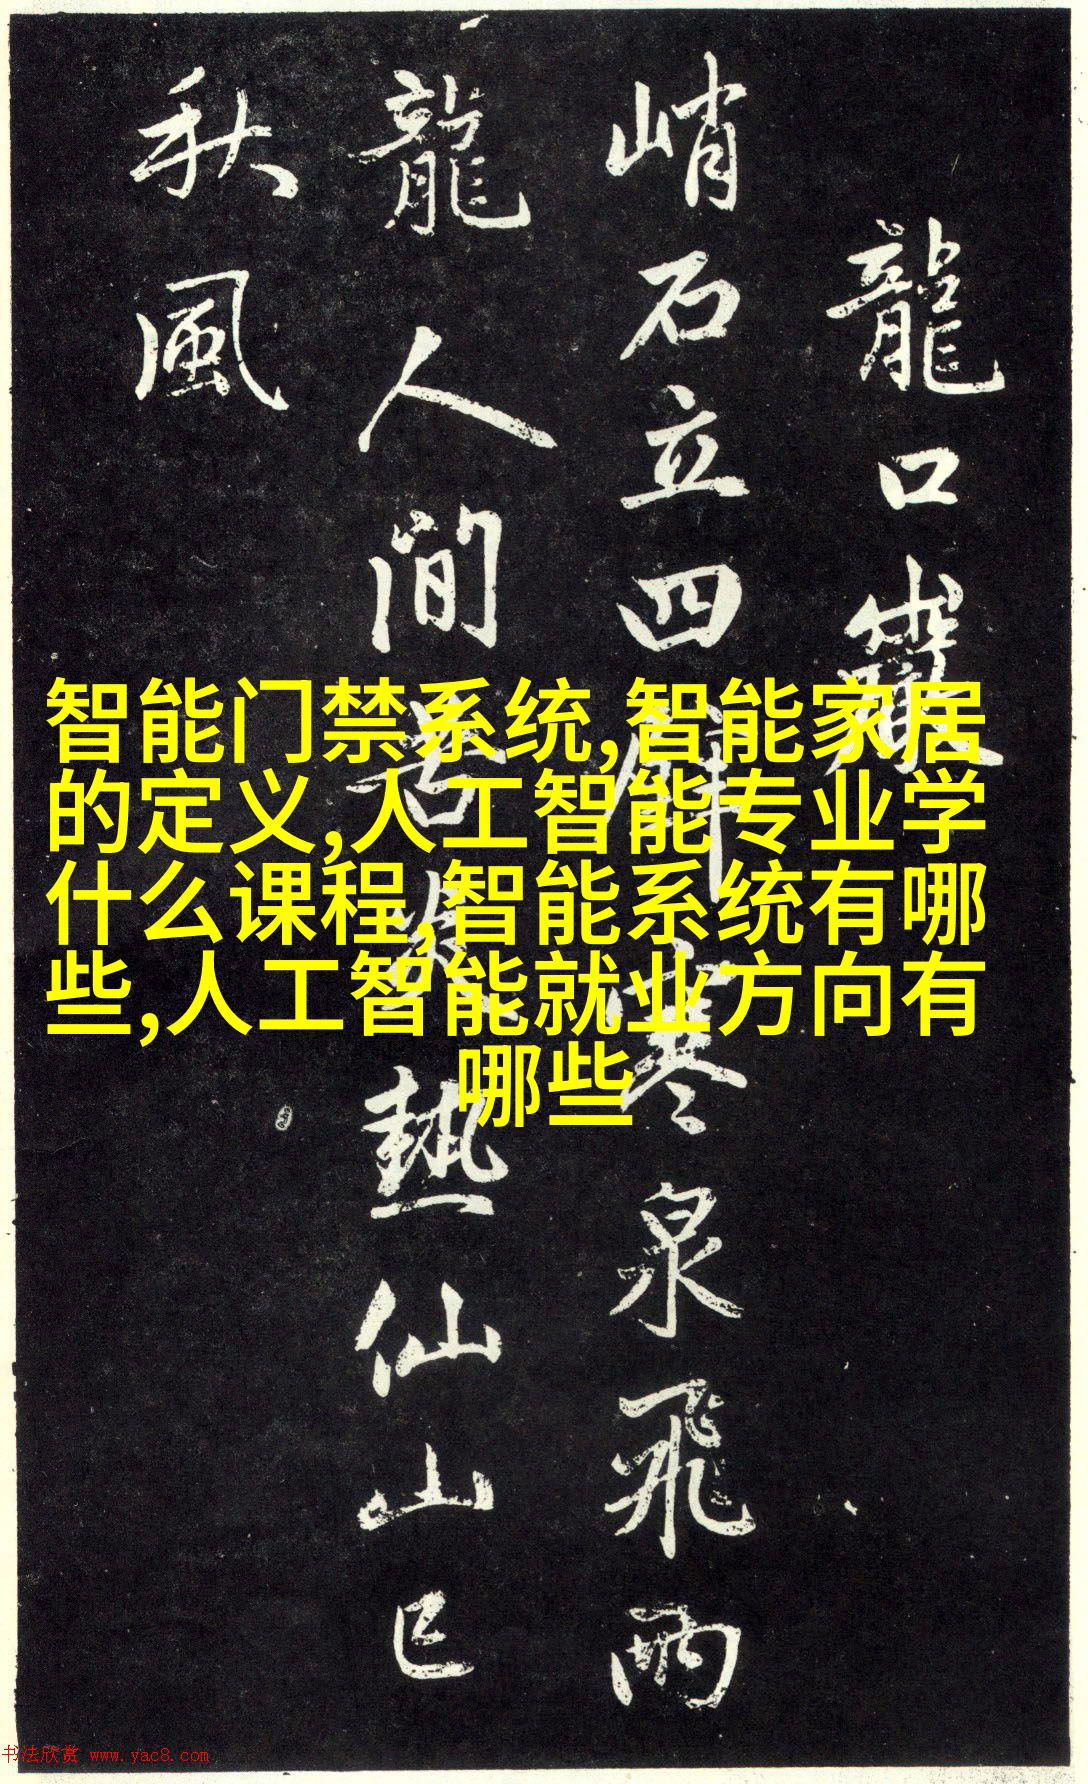 龍口巖
峭石立四壁寒泉飛兩
龍人間苦炎熱仙山已
秋風
智能门禁系统,智能家居
的定义,人工智能专业学
什么课程,智能系统有哪
些,人工智能就业方向有
哪些
书法欣赏 www.yac8.com